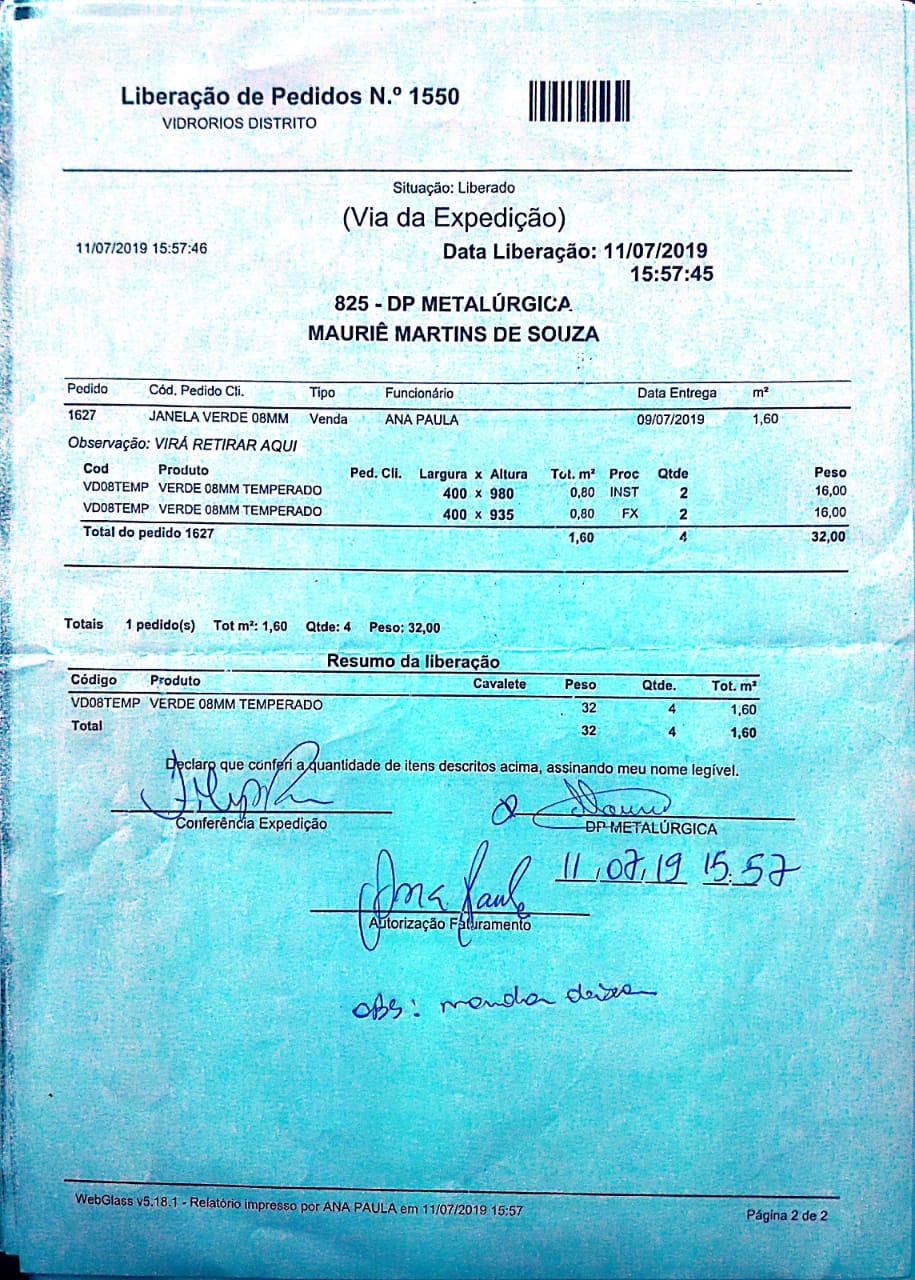 Liberação de Pedidos N.º 1550
VIDRORIOS DISTRITO
Situação: Liberado
(Via da Expedição)
11/07/2019 15:57:46
Data Liberação: 11/07/2019
15:57:45
825 - DP METALÚRGICA
MAURIÊ MARTINS DE SOUZA
Pedido Cód. Pedido Cli. Tipo Funcionário Data Entrega m²
1627 JANELA VERDE 08MM Venda ANA PAULA 09/07/2019 1,60
Observação: VIRÁ RETIRAR AQUI
Cod Produto Ped. Cli. Largura x Altura Tot. m² Proc Qtde Peso
VD08TEMP VERDE 08MM TEMPERADO 400 x 980 0,80 INST 2 16,00
VD08TEMP VERDE 08MM TEMPERADO 400 x 935 0,80 FX 2 16,00
Total do pedido 1627 1,60 4 32,00
Totais 1 pedido(s) Tot m²: 1,60 Qtde: 4 Peso: 32,00
Resumo da liberação
Código Produto Cavalete Peso Qtde. Tot. m²
VD08TEMP VERDE 08MM TEMPERADO 32 4 1,60
Total 32 4 1,60
Declaro que conferi a quantidade de itens descritos acima, assinando meu nome legível.
Conferência Expedição
DP METALÚRGICA
11/07/19 15:57
Ana Paula
Autorização Faturamento
OBS: mandou deixar
WebGlass v5.18.1 - Relatório impresso por ANA PAULA em 11/07/2019 15:57
Página 2 de 2